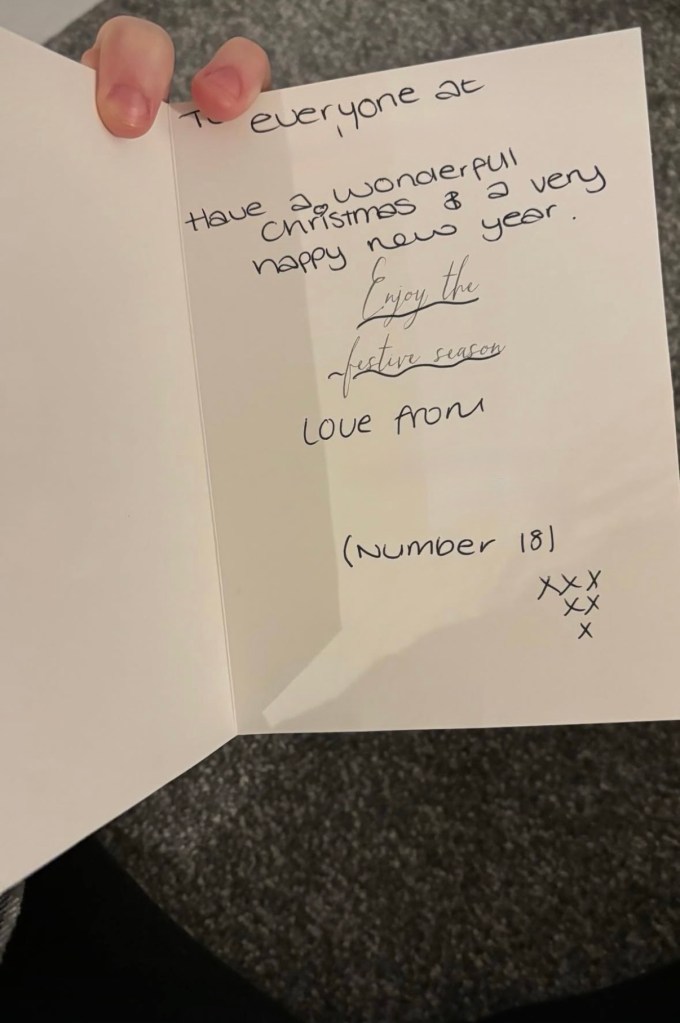 To everyone at
Have a wonderful
Christmas & a very
happy new year.
Enjoy the
festive season
Love from
(Number 18)
xxx
xx
x